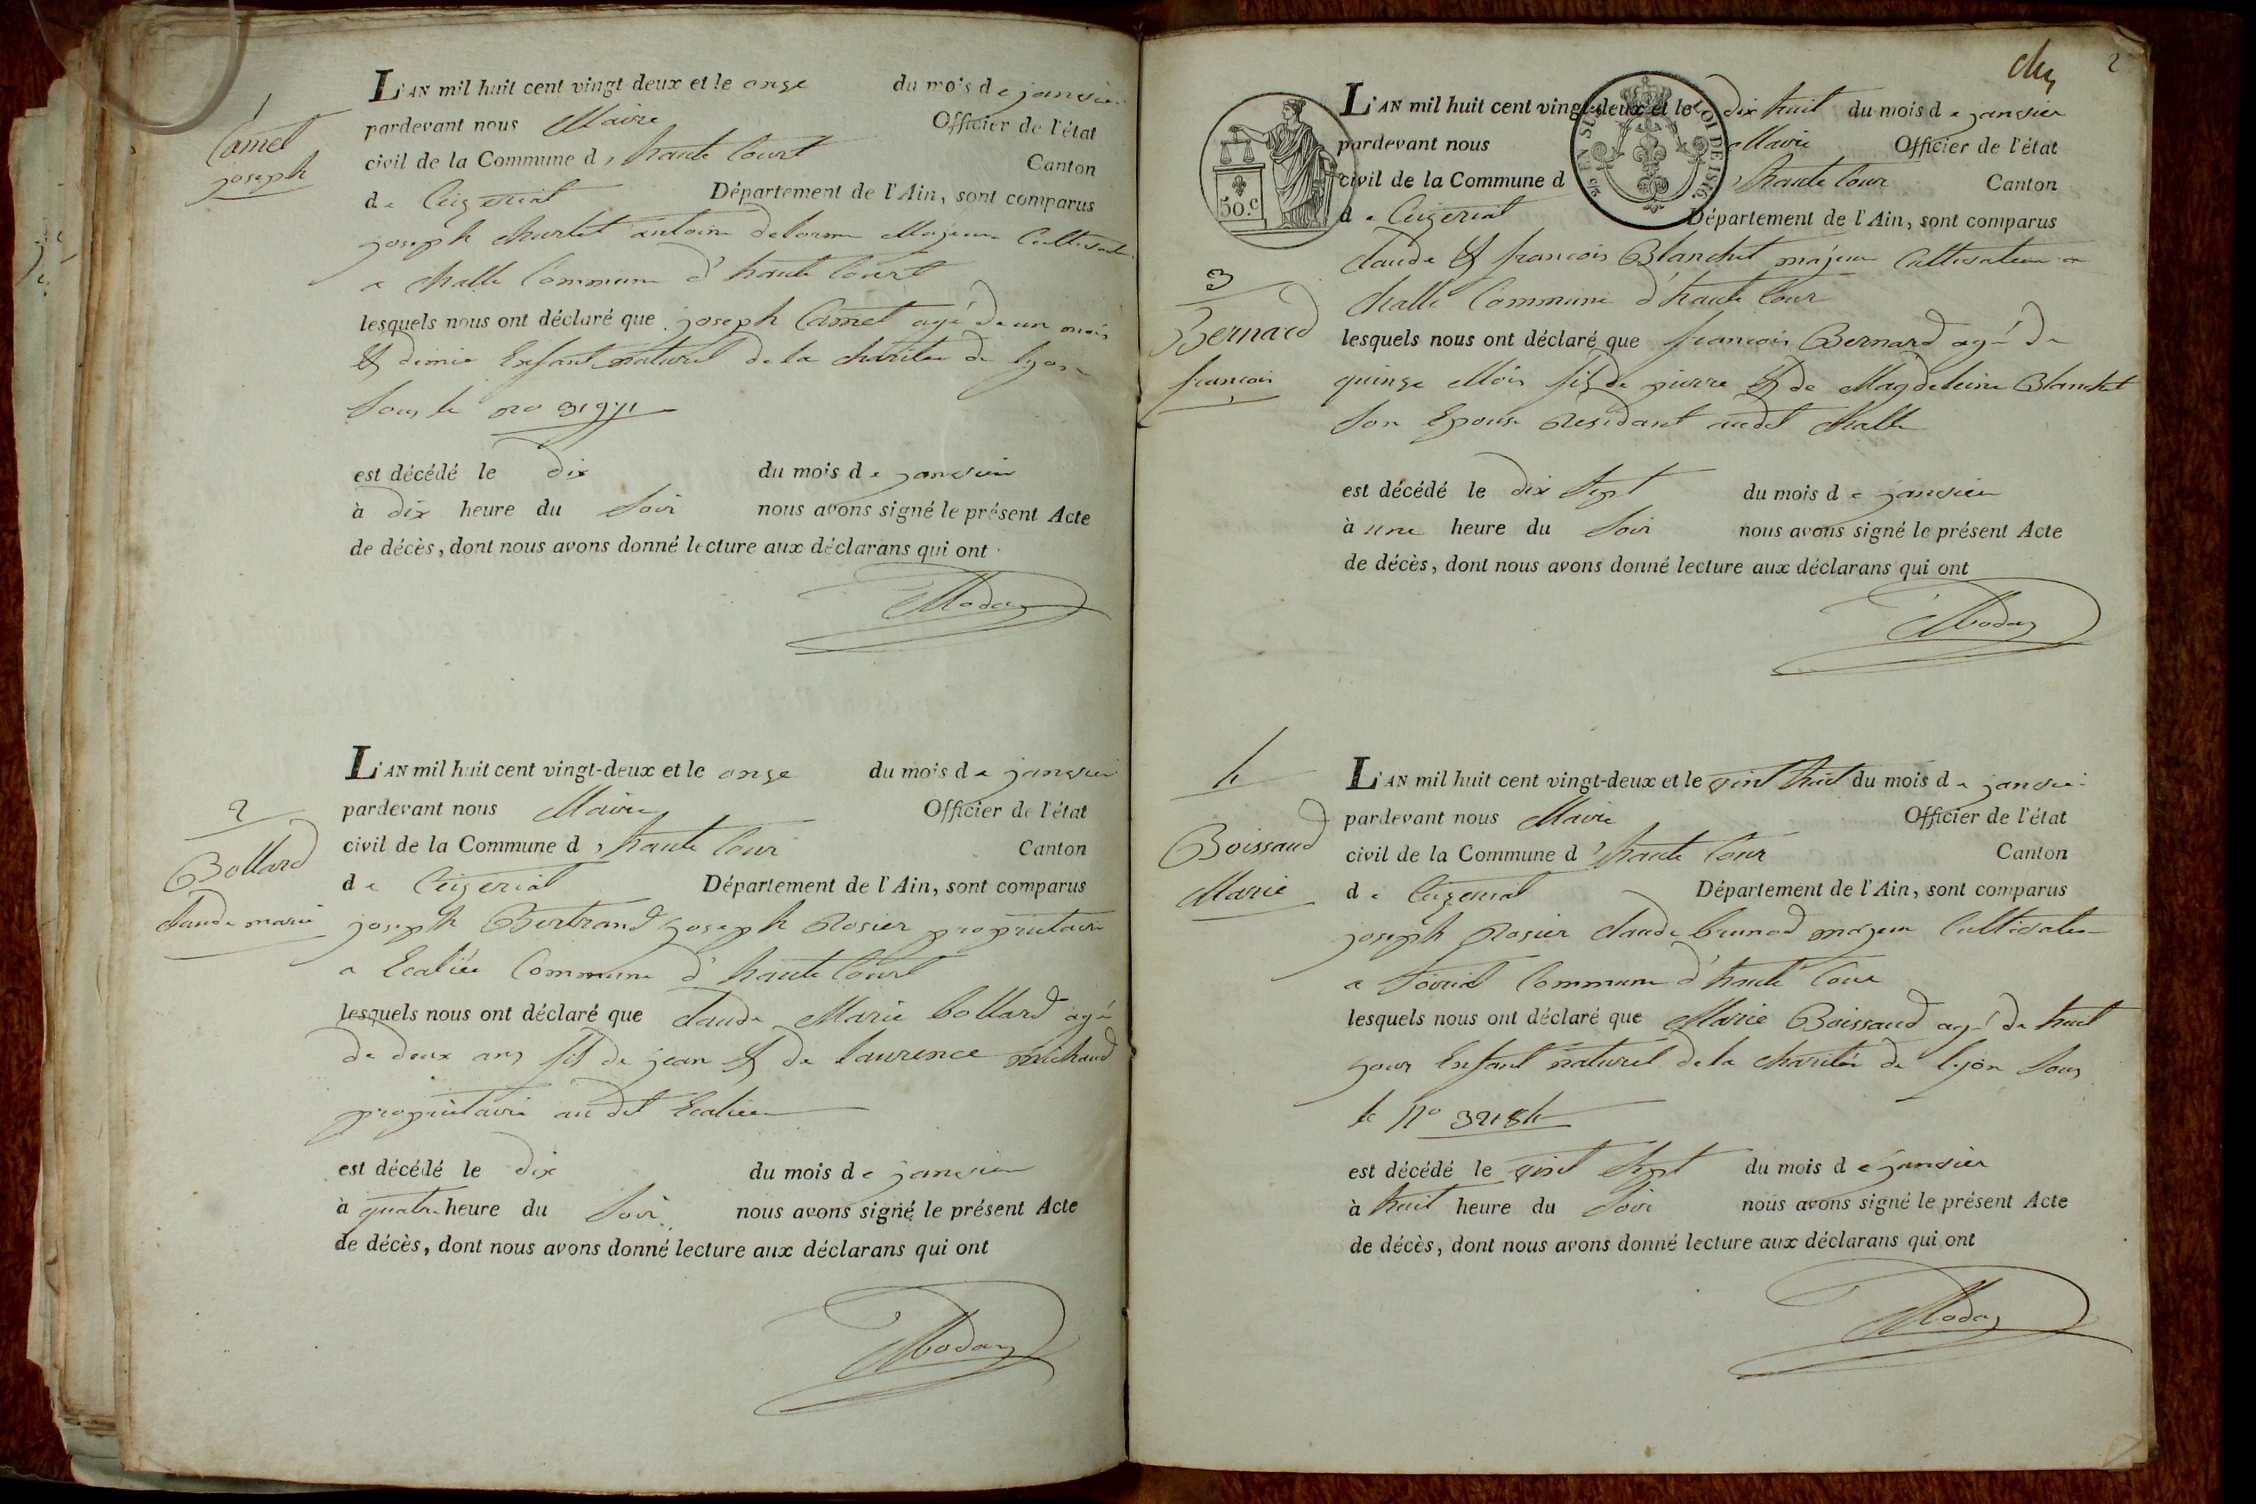 1
Camet
joseph
L'AN mil huit cent vingt deux et le onze du mois de janvier
pardevant nous Maire Officier de l'état
civil de la Commune d, haute Court Canton
de Ceizeriat Département de l'Ain, sont comparus
joseph churlet antoine delorme Majeur Cultivateur
a challe Commune d'haute Court
lesquels nous ont déclaré que joseph Camet agé de un mois
& demie Enfant naturel de la charitée de lyon
Sous le no 31971
est décédé le dix du mois de janvier
à dix heure du Soir nous avons signé le présent Acte
de décès, dont nous avons donné lecture aux déclarans qui ont
2
Bollard
claude marie
L'AN mil huit cent vingt-deux et le onze du mois de janvier
pardevant nous Maire Officier de l'état
civil de la Commune d, haute Cour Canton
de Ceizeriat Département de l'Ain, sont comparus
joseph Bertrand joseph Rosier proprietaire
a Ecaliée Commune d'haute Court
lesquels nous ont déclaré que claude Marie bollard agé
de deux ans fils de jean & de laurence michaud
propriétaire au dit Ecaliée
est décédé le dix du mois de janvier
à quatre heure du Soir nous avons signé le présent Acte
de décès, dont nous avons donné lecture aux déclarans qui ont
2
50.c
EN SUS LOI DE 1816
L'AN mil huit cent vingt-deux et le dix huit du mois de janvier
pardevant nous Maire Officier de l'état
civil de la Commune d, haute Cour Canton
de Ceizeriat Département de l'Ain, sont comparus
3
Bernard
françois
claude & francois Blanchet majeur Cultivateur a
challe Commune d'haute Cour
lesquels nous ont déclaré que francois Bernard agé de
quinze Mois fils de pierre & de Magdeleine Blanchet
Son Epouse Residant audit challe
est décédé le dix Sept du mois de janvier
à une heure du Soir nous avons signé le présent Acte
de décès, dont nous avons donné lecture aux déclarans qui ont
4
Boissaud
Marie
L'AN mil huit cent vingt-deux et le vint huit du mois de janvier
pardevant nous Maire Officier de l'état
civil de la Commune d'haute Cour Canton
de Ceizeriat Département de l'Ain, sont comparus
joseph Rosier claude brunod majeur Cultivateur
a Commune d'haute Cour
lesquels nous ont déclaré que Marie Boissaud agé de huit
jours Enfant naturel de la charitée de lyon Sous
le No 32184
est décédé le vint Sept du mois de janvier
à huit heure du Soir nous avons signé le présent Acte
de décès, dont nous avons donné lecture aux déclarans qui ont